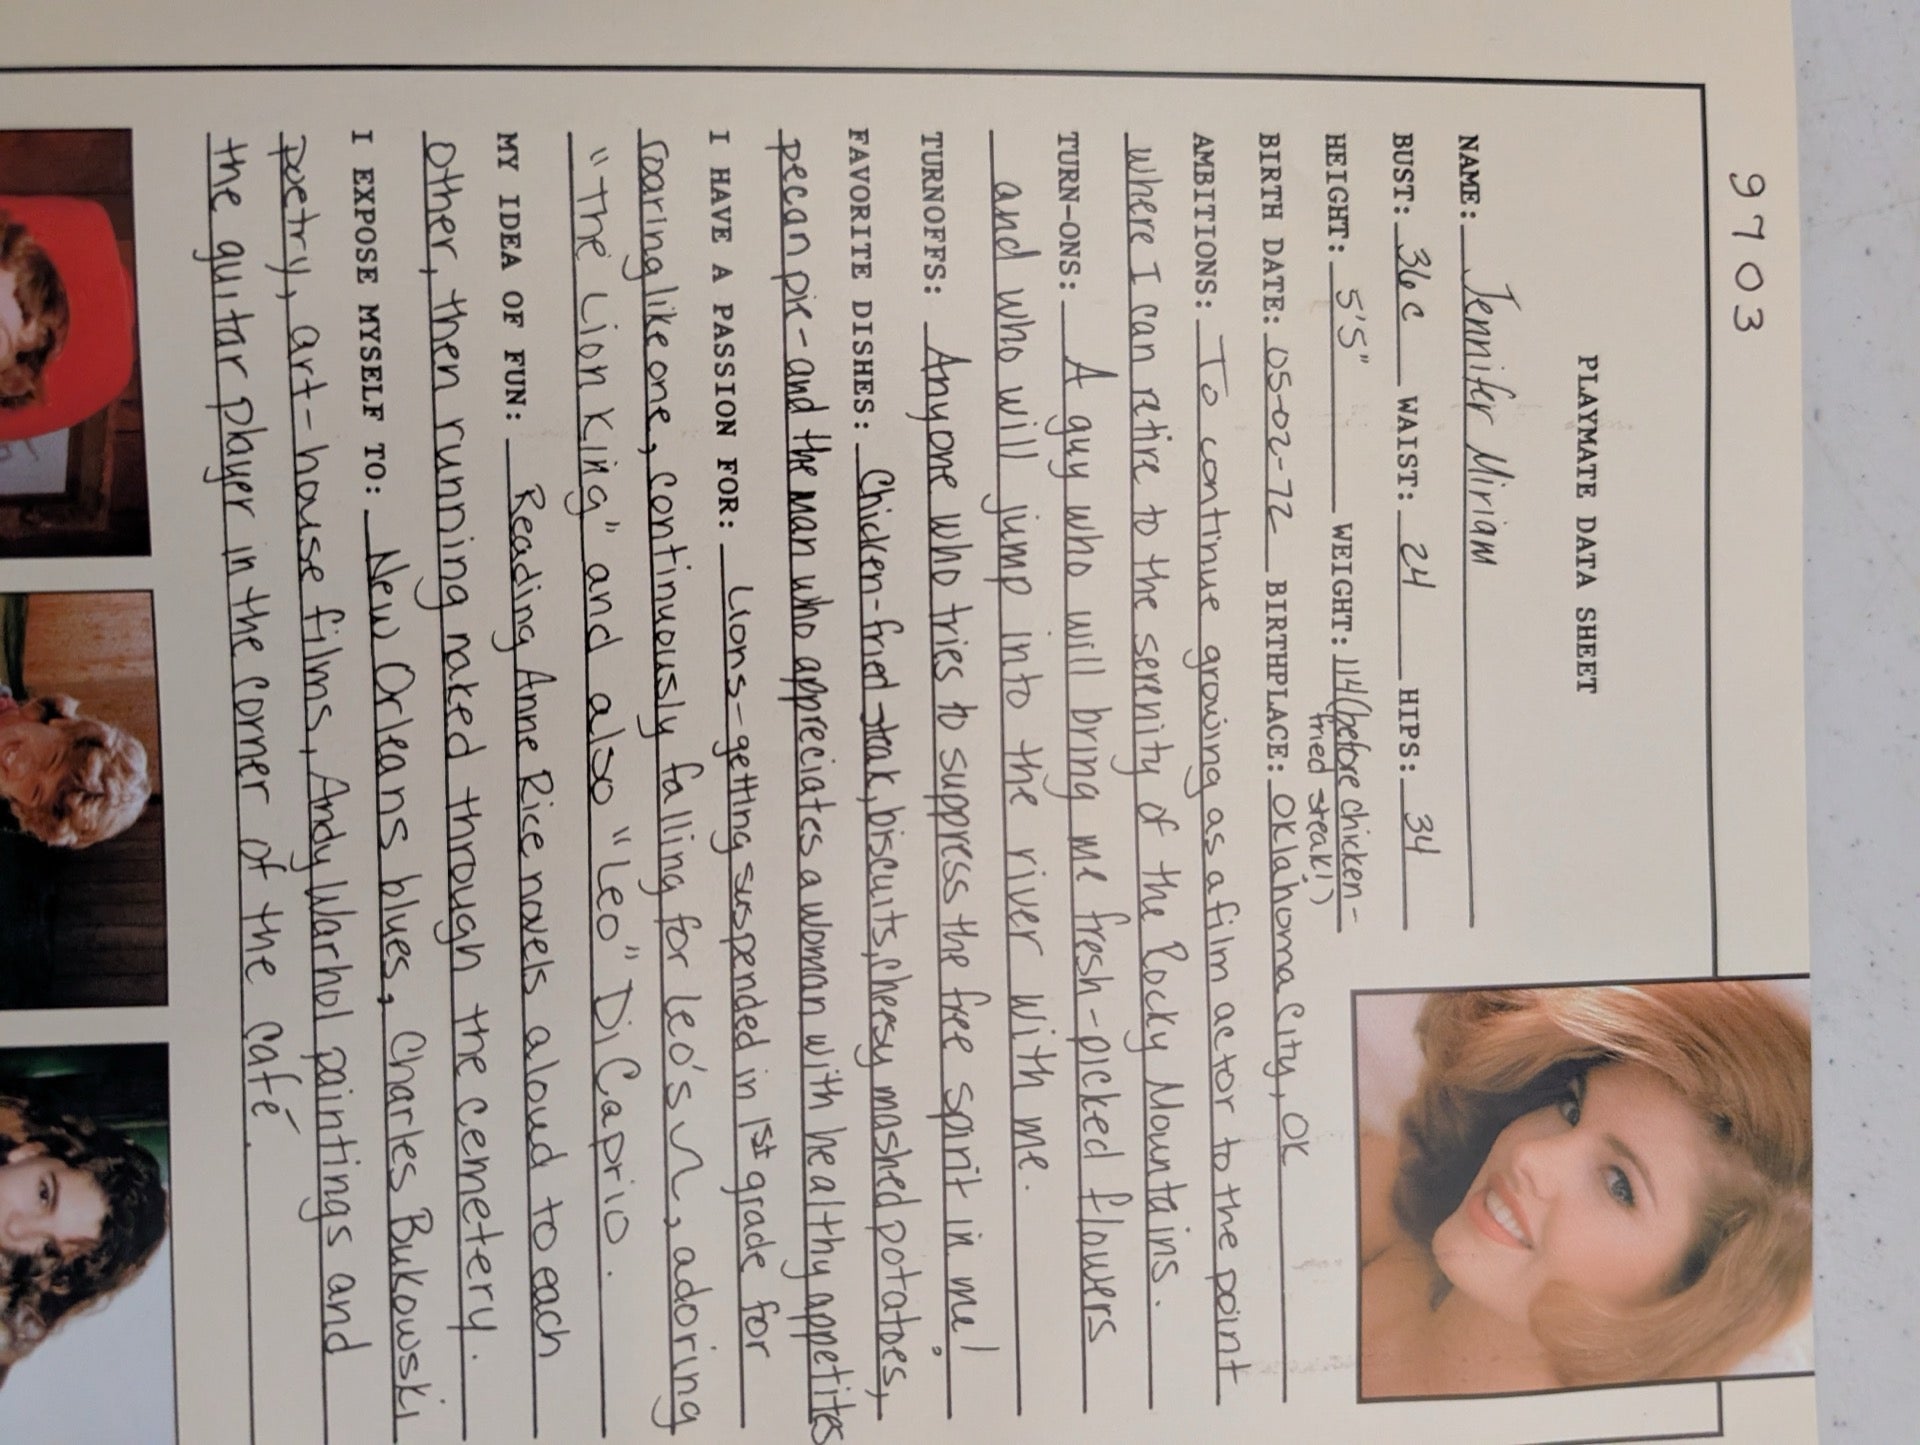 9703
PLAYMATE DATA SHEET
NAME: Jennifer Miriam
BUST: 36C WAIST: 24 HIPS: 34
HEIGHT: 5'5" WEIGHT: 114 (before chicken-
fried steak!)
BIRTH DATE: 05-02-72 BIRTHPLACE: Oklahoma City, OK
AMBITIONS: To continue growing as a film actor to the point
where I can retire to the serenity of the Rocky Mountains.
TURN-ONS: A guy who will bring me fresh-picked flowers
and who will jump into the river with me.
TURNOFFS: Anyone who tries to suppress the free spirit in me!
FAVORITE DISHES: Chicken-fried steak, biscuits, cheesy mashed potatoes,
pecan pie-and the man who appreciates a woman with healthy appetites
I HAVE A PASSION FOR: Lions-getting suspended in 1st grade for
roaring like one, continuously falling for Leo's ♌, adoring
"The Lion King" and also "Leo" DiCaprio.
MY IDEA OF FUN: Reading Anne Rice novels aloud to each
other, then running naked through the cemetery.
I EXPOSE MYSELF TO: New Orleans blues, Charles Bukowski
poetry, art-house films, Andy Warhol paintings and
the guitar player in the corner of the café.